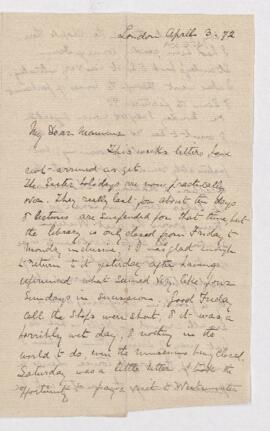 London April 3. 72
My Dear Mamma
This weeks letters have
not arrived as yet.
The Easter holidays are now practically
over. They really last for about ten days
& lectures are suspended for that time, but
the library is only closed from Friday to
Monday inclusive, & I was glad enough
to return to it yesterday after having
experienced what seemed very like four
Sundays in succession. Good Friday
all the shops were shut, & it was a
horribly wet day, & nothing in the
world to do, even the museums being closed.
Saturday was a little better & I took the
opportunity to pay a visit to Westminster